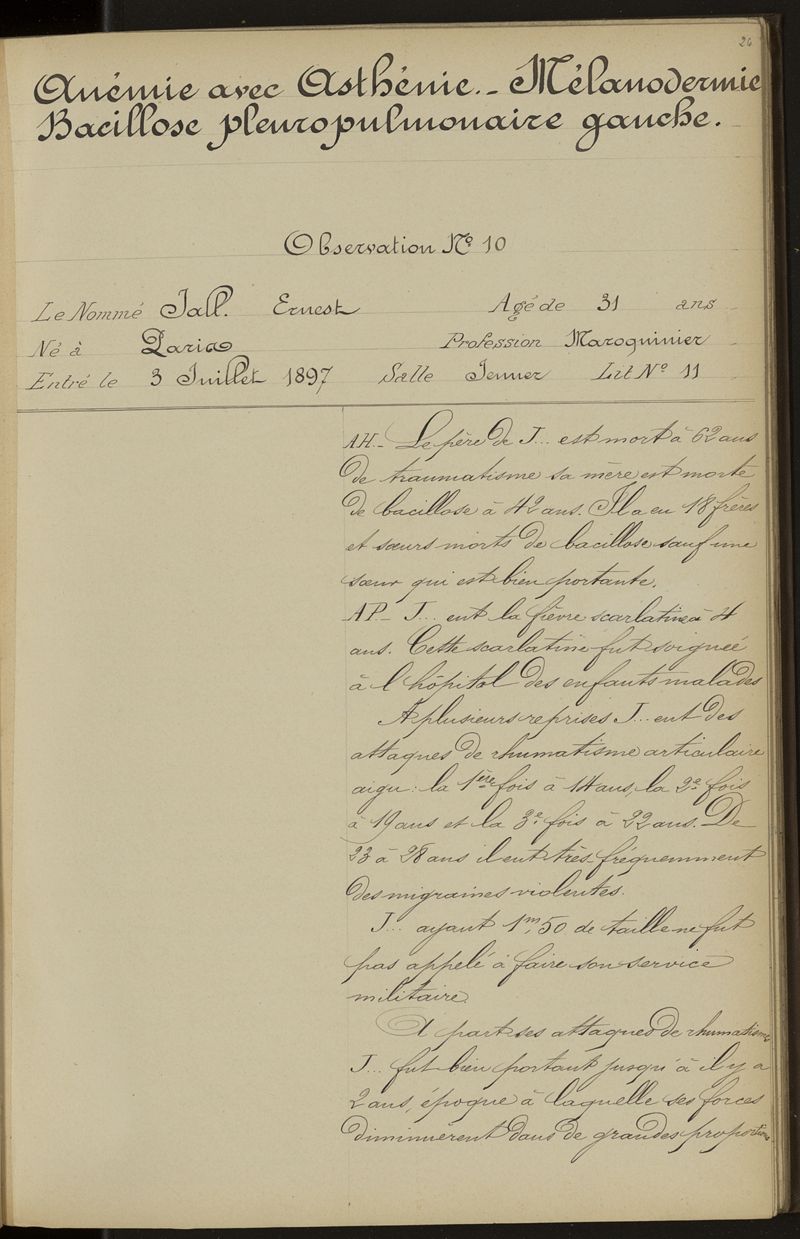 26
Anémie avec Asthénie. - Mélanodermie
Bacillose pleuropulmonaire gauche.
Observation No. 10
Le Nommé Jall. Ernest Agé de 31 ans
Né à Paris Profession Maroquinier
Entré le 3 Juillet 1897 Salle Jenner Lit No 11
AH. - Le père de J... est mort à 62 ans
de traumatisme sa mère est morte
de bacillose à 42 ans. Il a eu 18 frères
et sœurs morts de bacillose sauf une
sœur qui est bien portante.
AP - J... eut la fièvre scarlatine à 4
ans. Cette scarlatine fut soignée
à l'hôpital des enfants malades
A plusieurs reprises J... eut des
attaques de rhumatisme articulaire
aigu : la 1ère fois à 14 ans, la 2e fois
à 19 ans et la 3e fois à 22 ans. De
23 à 28 ans il eut très fréquemment
des migraines violentes.
J... ayant 1m,50 de taille ne fut
pas appelé à faire son service
militaire.
A part ses attaques de rhumatisme
J... fut bien portant jusqu'à il y a
2 ans, époque à laquelle ses forces
diminuèrent dans de grandes proportions